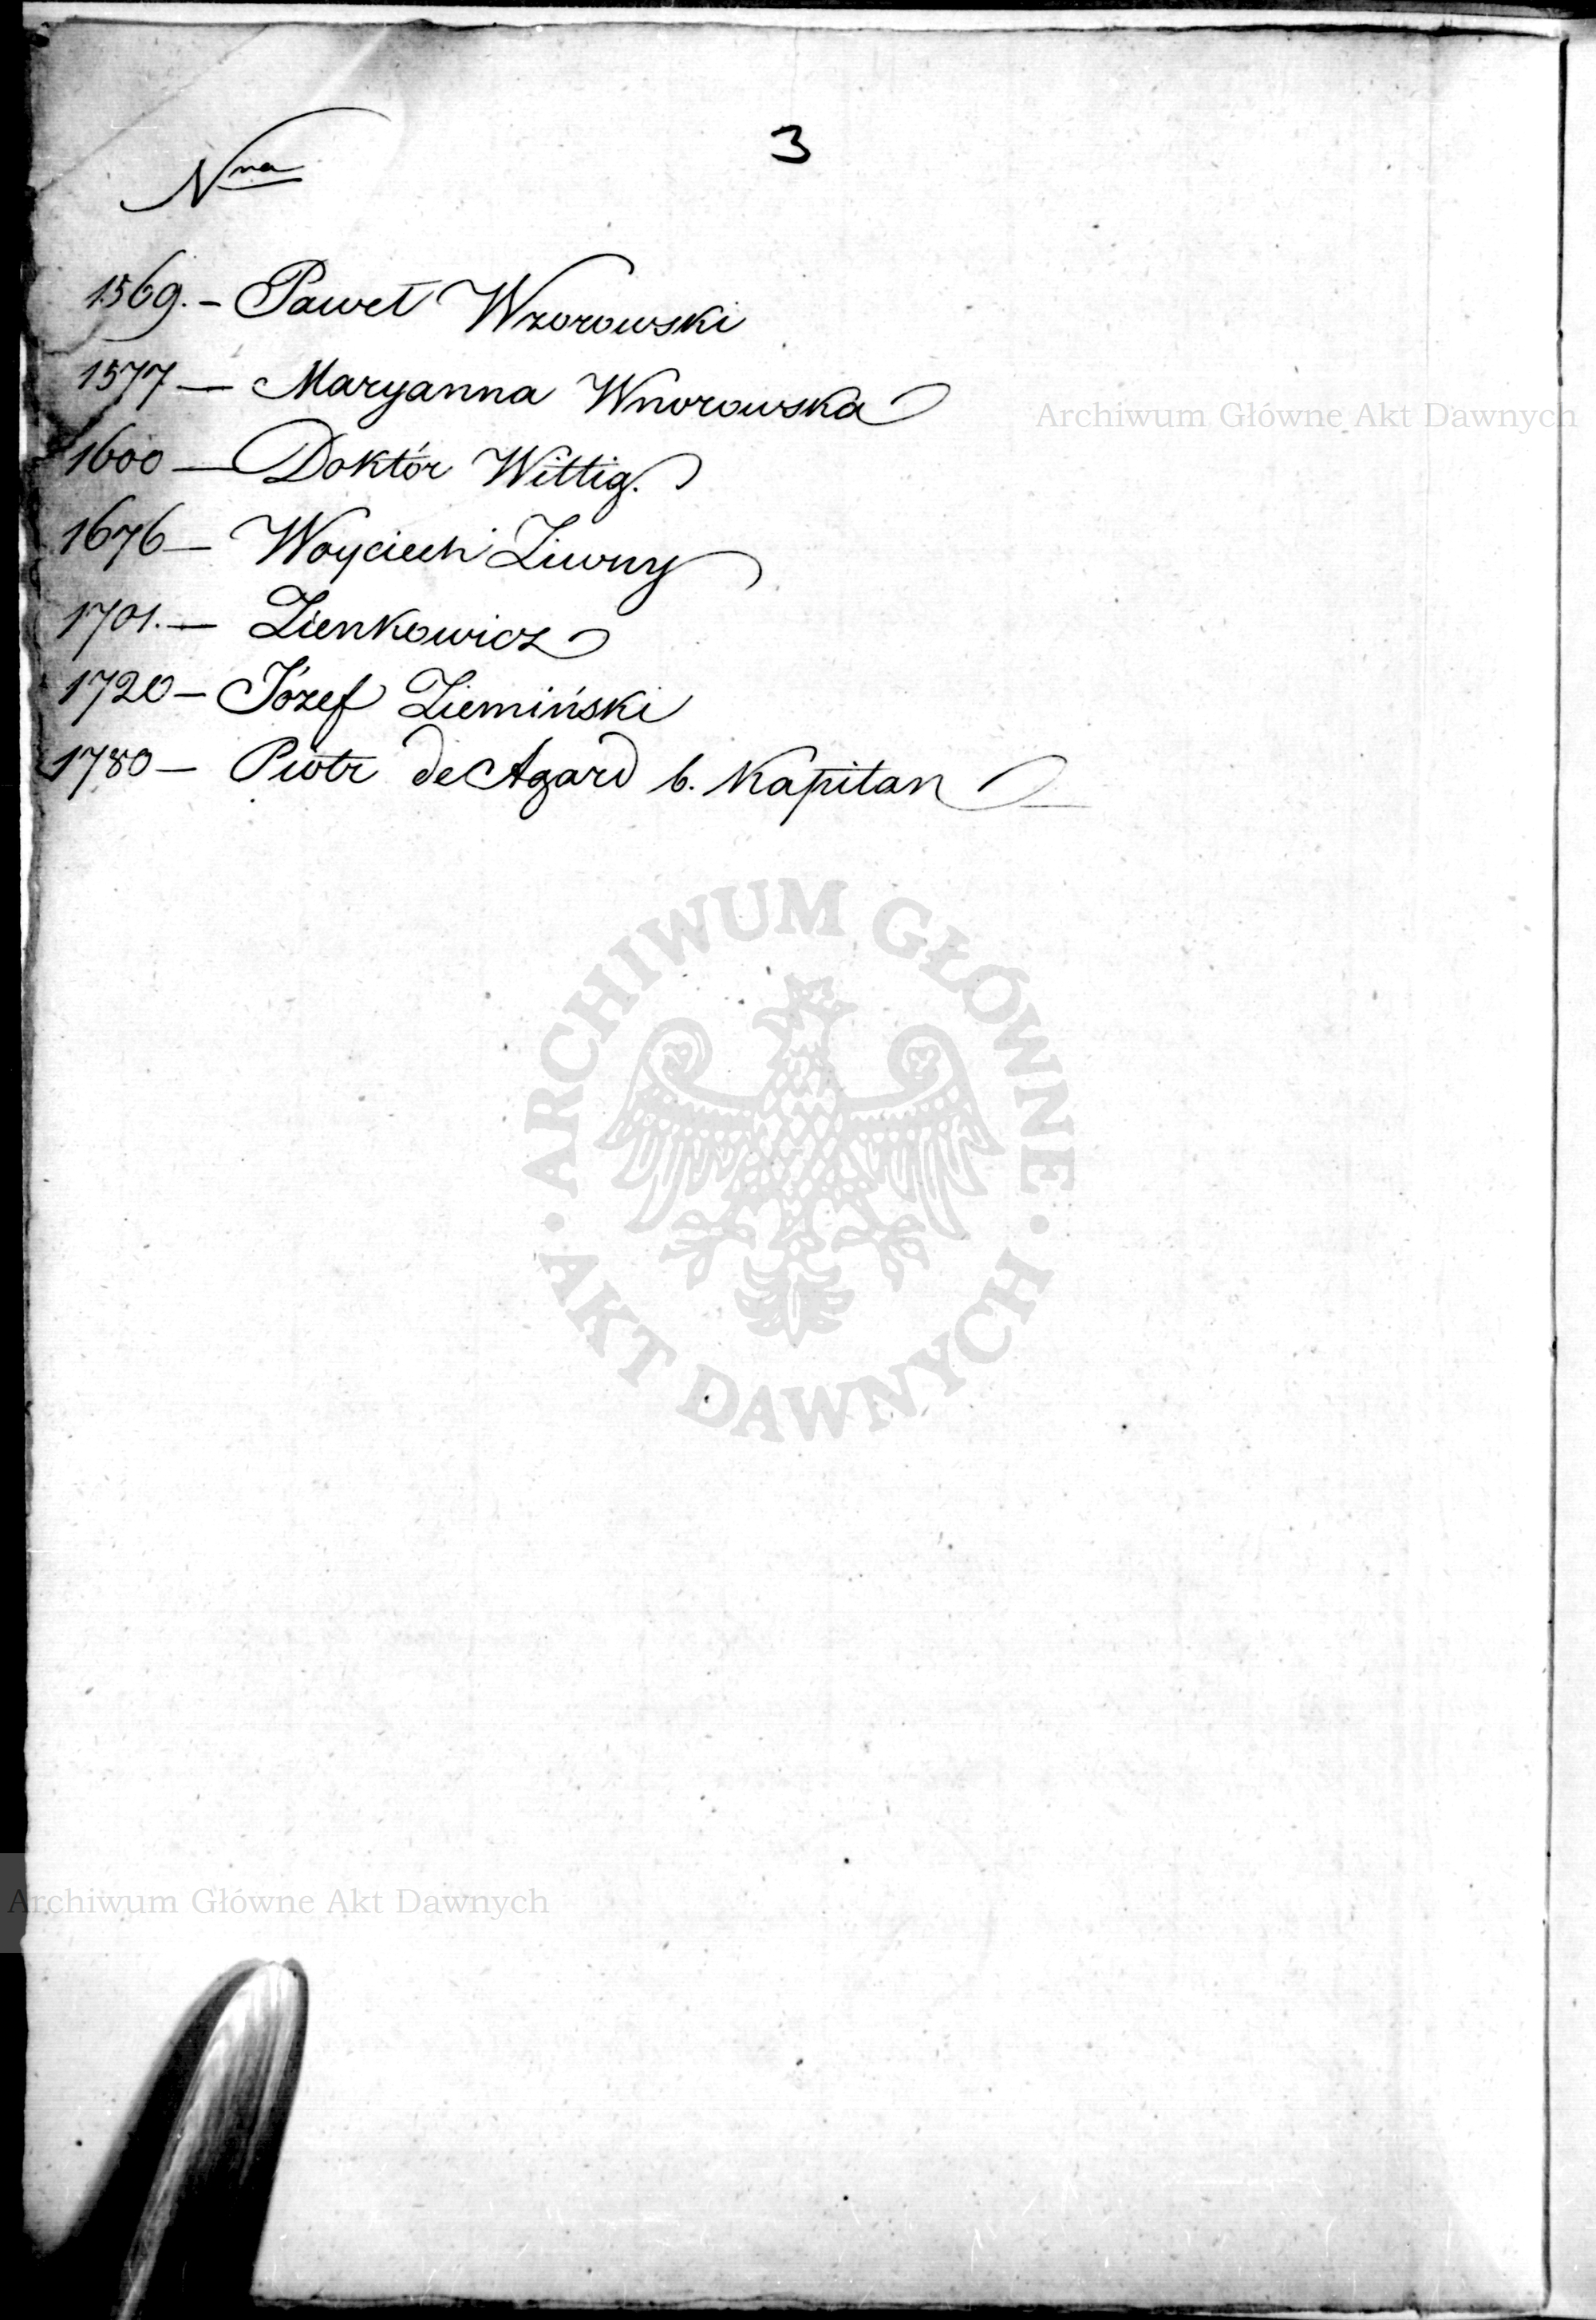 3
Nra
1569. – Paweł Wzorowski
1577 — Maryanna Wnorowska
1600 — Doktór Wittig.
1676 — Woyciech Ziwny
1701. — Zienkowicz
1720 — Józef Ziemiński
1780 — Piotr de Agard b. Kapitan
Archiwum Główne Akt Dawnych
ARCHIWUM GŁÓWNE · AKT DAWNYCH ·
Archiwum Główne Akt Dawnych